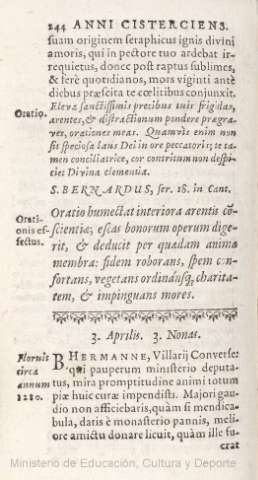 244 ANNI CISTERCIENS.
suam originem seraphicus ignis divini
amoris, qui in pectore tuo ardebat ir-
requietus, donec post raptus sublimes,
& ferè quotidianos, mors viginti antè
diebus præscita te cœlitibus conjunxit.
Oratio.
Eleva sanctissimis precibus tuis frigidas,
arentes, & distractionum pondere prægra-
ves, orationes meas. Quamvis enim non
sit speciosa laus Dei in ore peccatoris; te ta-
men conciliatrice, cor contritum non despi-
ciet Divina clementia.
S. BERNARDUS, ser. 18. in Cant.
Orati-
onis ef-
fectus.
Oratio humectat interiora arentis cõ-
scientiæ; escas bonorum operum dige-
rit, & deducit per quædam animæ
membra: fidem roborans, spem co-
nfortans, vegetans ordinánsq; charita-
tem, & impinguans mores.
3. Aprilis. 3. Nonas.
Floruit
circa
annum
1280.
BHERMANNE, Villarij Converse:
qui pauperum ministerio deputa-
tus, mira promptitudine animi totum
piæ huic curæ impendisti. Majori gau-
dio non afficiebaris, quàm si mendica-
bula, datis è monasterio pannis, meli-
ore amictu donare licuit, quàm ille fu-
erat
Ministerio de Educación, Cultura y Deporte